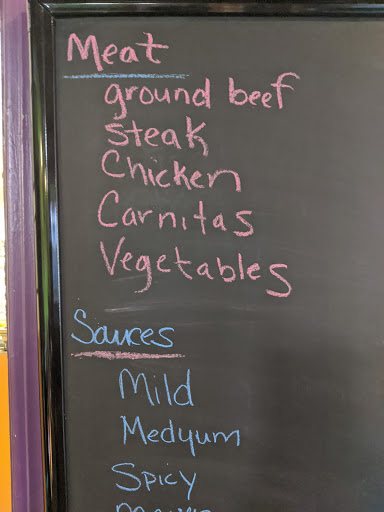 Meat
ground beef
Steak
Chicken
Carnitas
Vegetables
Sauces
Mild
Medyum
Spicy